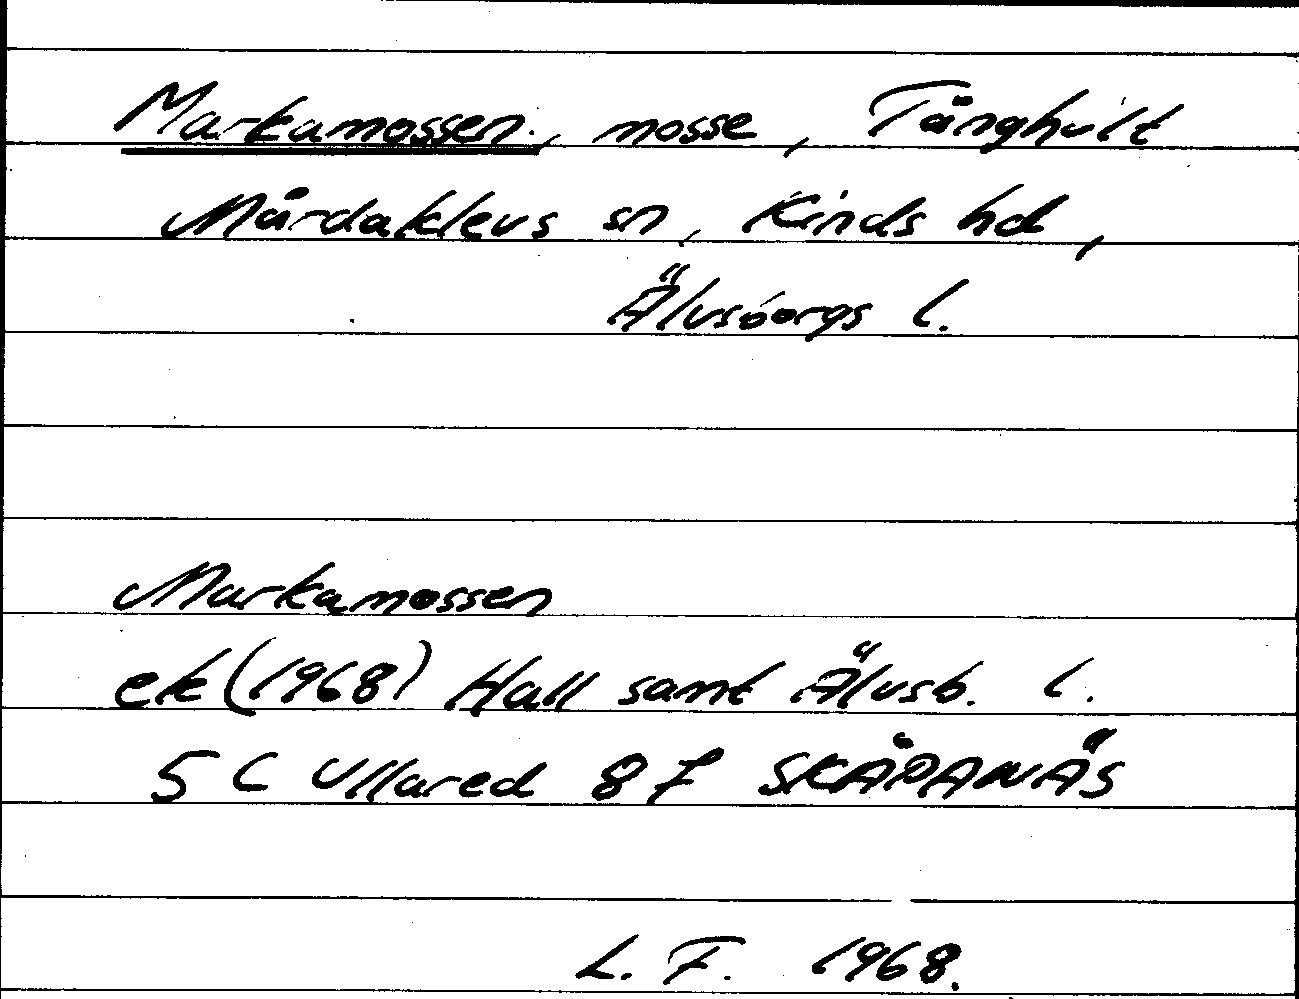 Markamossen, mosse, Tånghult
Mårdaklevs sn, Kinds hd,
Älvsborgs l.
Markamossen
ek (1968) Hall samt Älvsb. l.
5 C Ullared 8 f SKÅPANÄS
L. F. 1968.